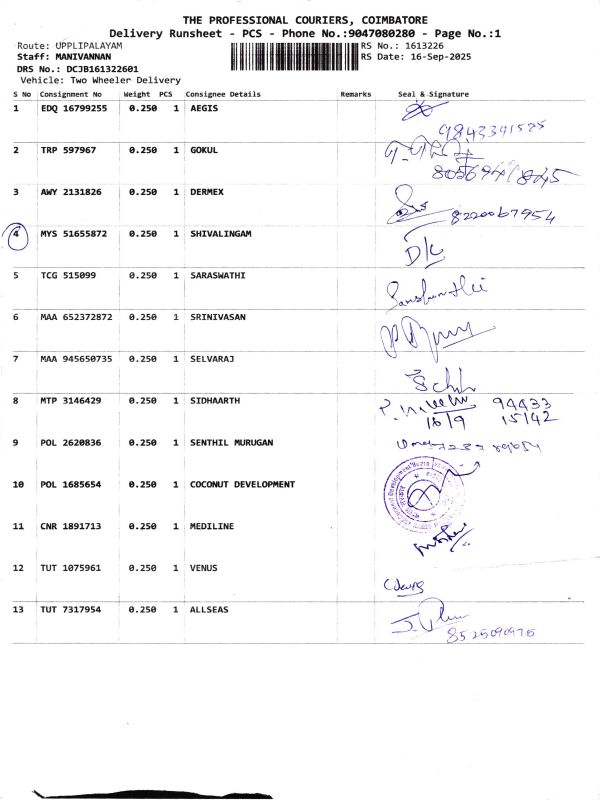 THE PROFESSIONAL COURIERS, COIMBATORE
Delivery Runsheet - PCS - Phone No.:9047080280 - Page No.:1
Route: UPPLIPALAYAM RS No.: 1613226
Staff: MANIVANNAN RS Date: 16-Sep-2025
DRS No.: DCJB161322601
Vehicle: Two Wheeler Delivery
S No Consignment No Weight PCS Consignee Details Remarks Seal & Signature
1 EDQ 16799255 0.250 1 AEGIS
9843391575
2 TRP 597967 0.250 1 GOKUL
3 AWY 2131826 0.250 1 DERMEX
8220067954
4 MYS 51655872 0.250 1 SHIVALINGAM
5 TCG 515099 0.250 1 SARASWATHI
6 MAA 652372872 0.250 1 SRINIVASAN
7 MAA 945650735 0.250 1 SELVARAJ
8 MTP 3146429 0.250 1 SIDHAARTH 94433
16/9 15142
9 POL 2620836 0.250 1 SENTHIL MURUGAN
10 POL 1685654 0.250 1 COCONUT DEVELOPMENT
11 CNR 1891713 0.250 1 MEDILINE
12 TUT 1075961 0.250 1 VENUS
13 TUT 7317954 0.250 1 ALLSEAS
8525090975